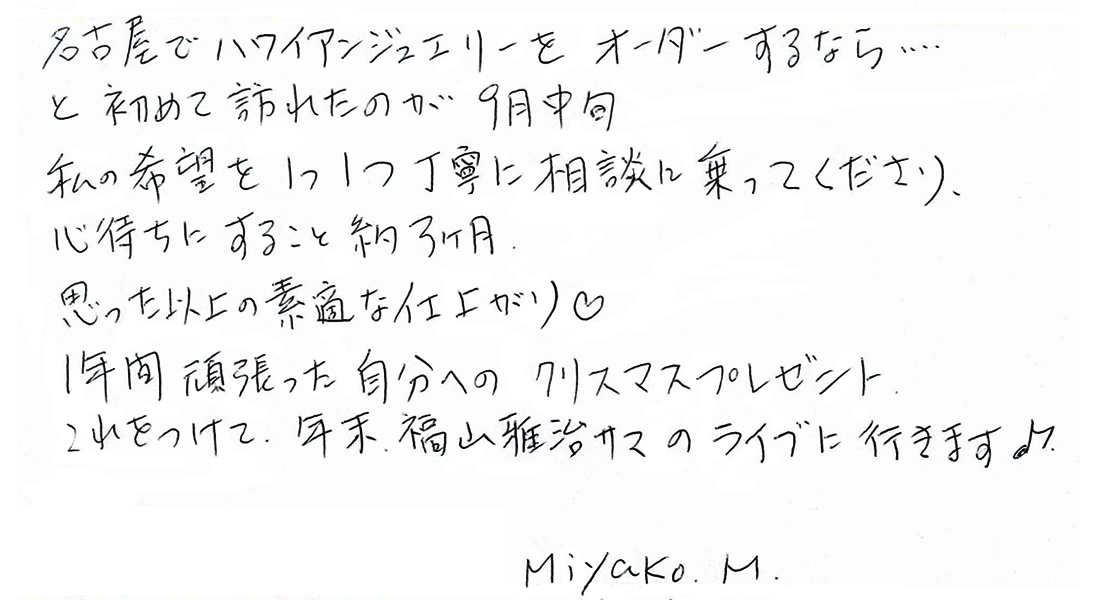 名古屋でハワイアンジュエリーを オーダーするなら‥‥
と 初めて訪れたのが 9月中旬
私の希望を1つ1つ丁寧に相談に乗ってくださり、
心待ちにすること約3ヶ月.
思った以上の素適な仕上がり♡
1年間 頑張った 自分への クリスマスプレゼント.
これをつけて、年末、福山雅治サマのライブに行きます♪.
Miyako. M.